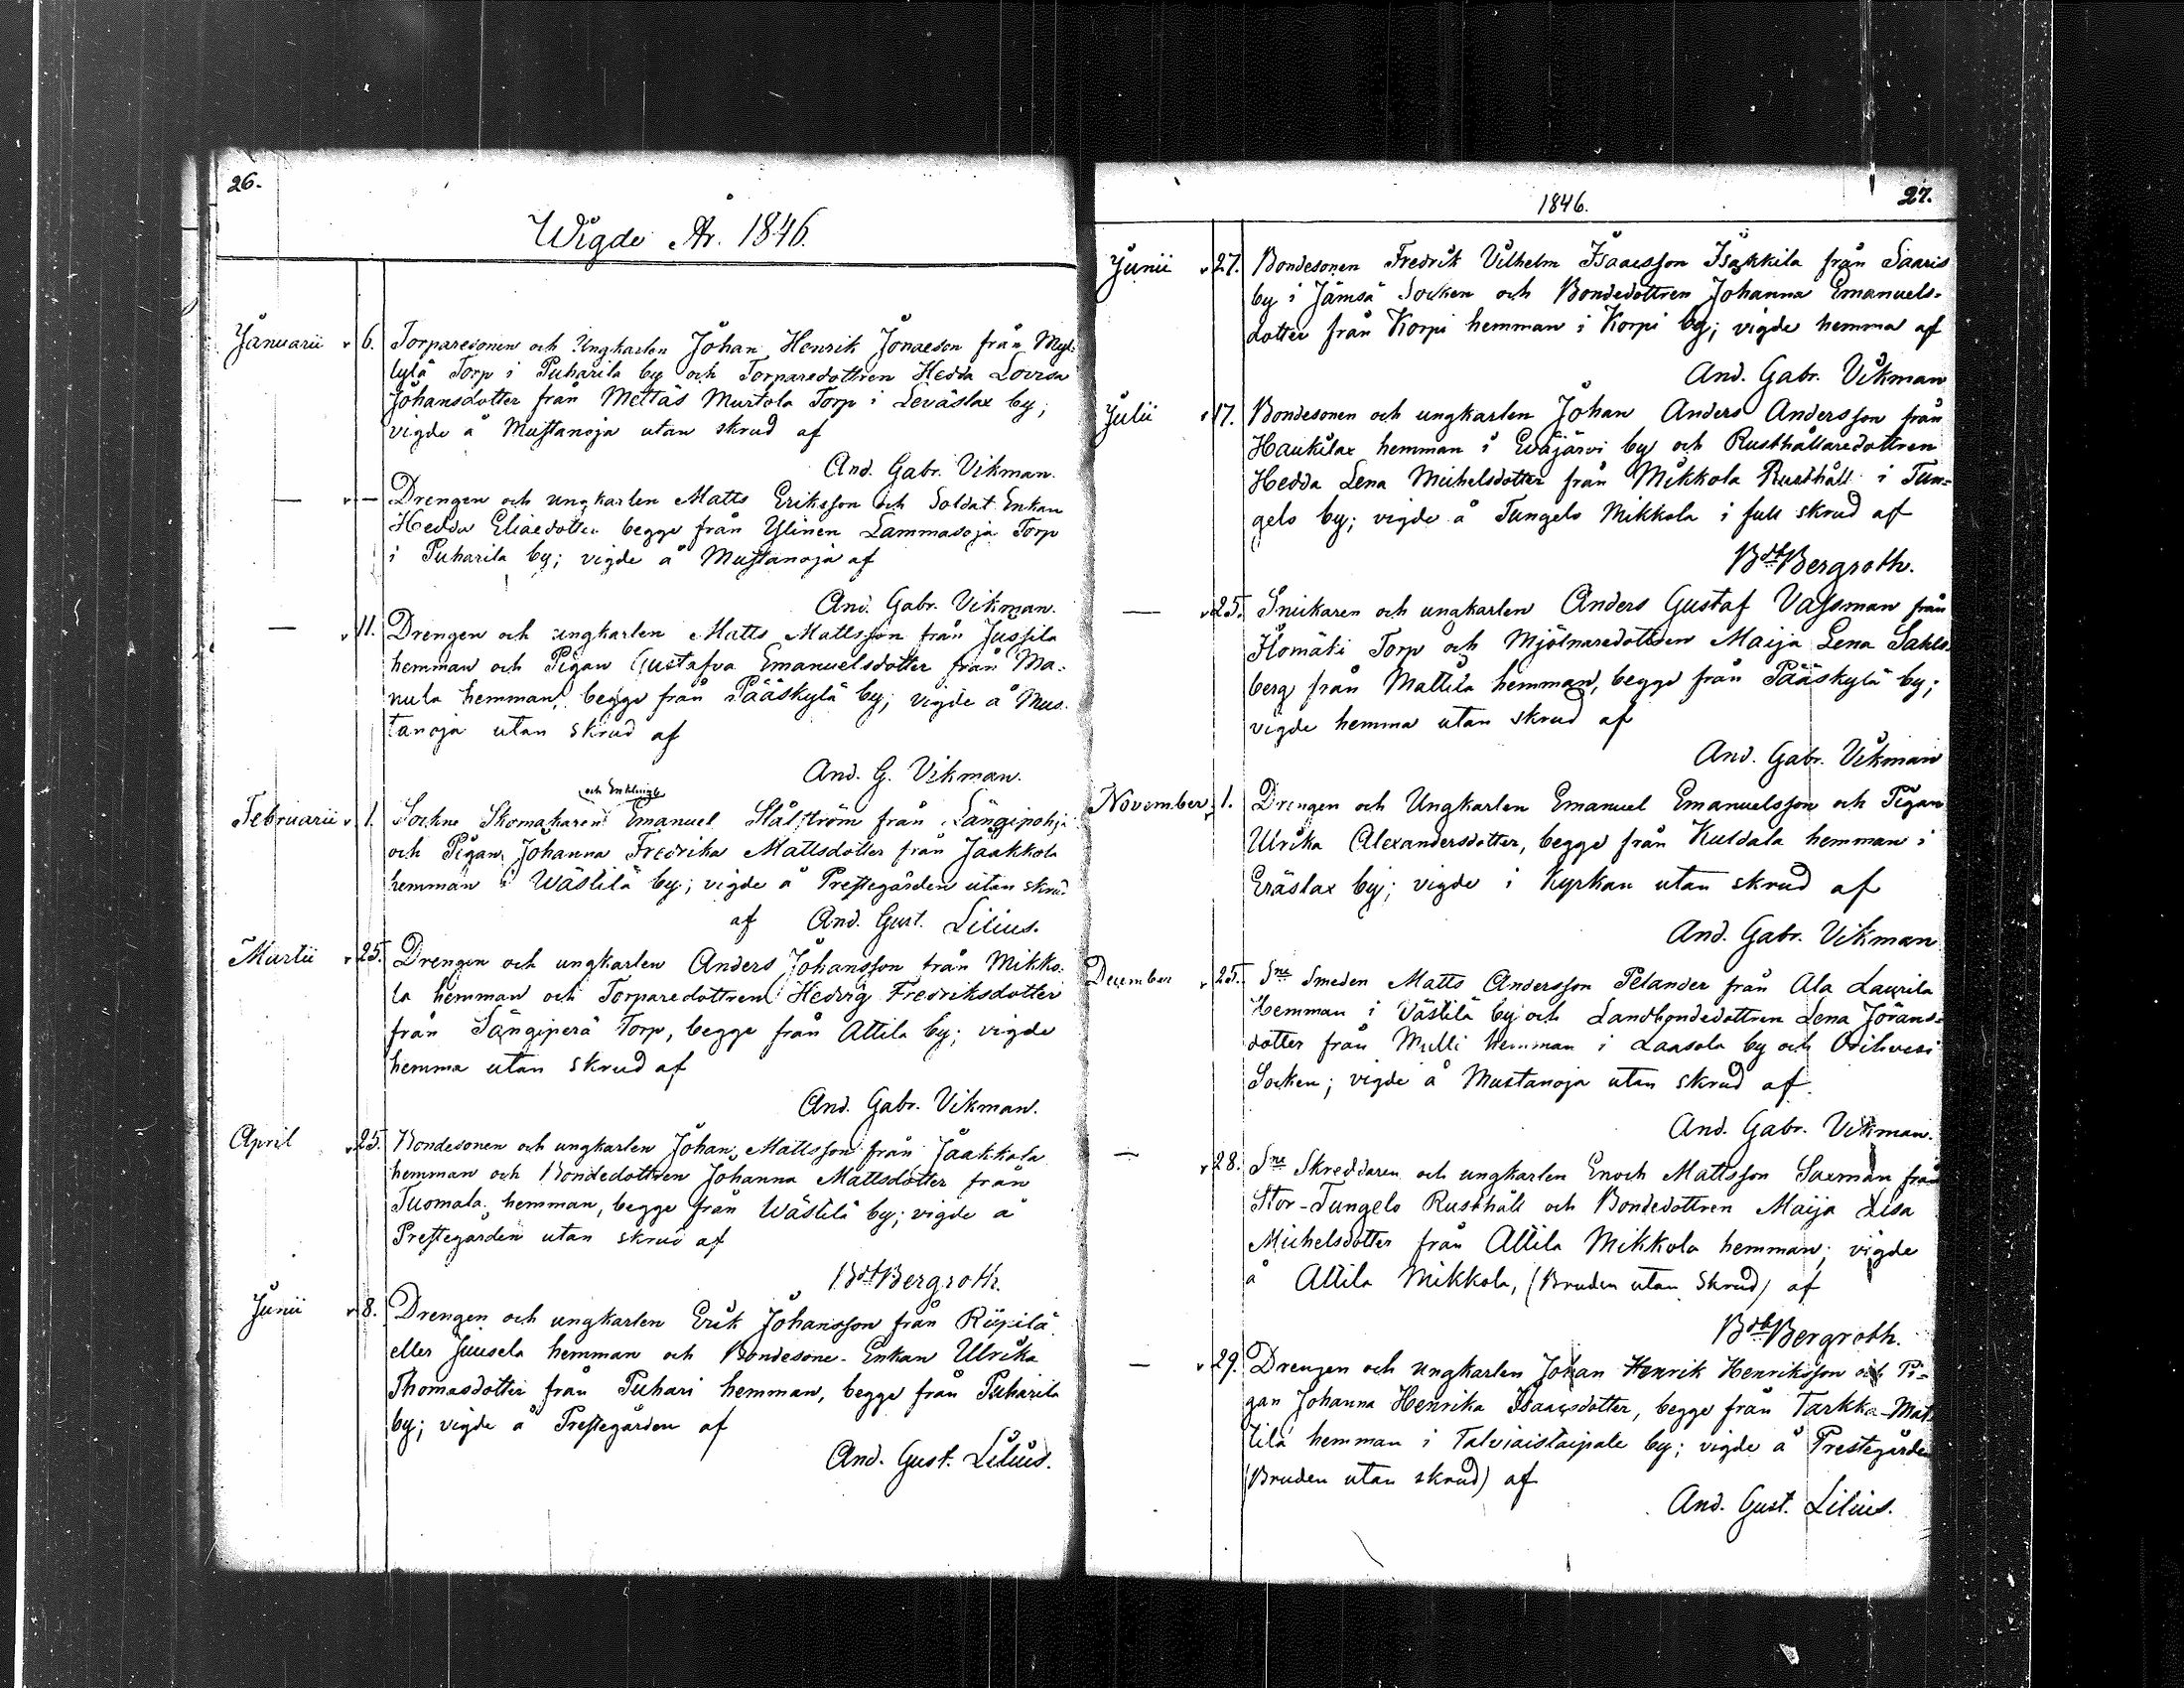 26.
Wigde År. 1846.
Januarii v 6. Torparesonen och Ungkarlen Johan Henrik Jonaeson från Myl-
lylä Torp i Puharila by och Torparedottren Hedda Lovisa
Johansdotter från Mettäs Murtola Torp i Leväslax by;
vigde å Mustanoja utan skrud af
And. Gabr. Vikman.
— v — Drengen och ungkarlen Matts Eriksson och Soldat Enkan
Hedda Eliaedotter begge från Ylinen Lammasoja Torp
i Puharila by; vigde å Mustanoja af
And. Gabr. Vikman.
— v 11. Drengen och ungkarlen Matts Mattsson från Jussila
hemman och Pigan Gustafva Emanuelsdotter från Ma-
nula hemman, begge från Pääskylä by; vigde å Mus-
tanoja utan skrud af
And. G. Vikman.
och Enklinge
Februarii v 1. Sockne Skomakaren Emanuel Stålström från Längipohja
och Pigan Johanna Fredrika Mattsdotter från Jaakkola
hemman i Wästilä by; vigde å Prestegården utan skrud
af And. Gust. Lilius.
Martii v 25. Drengen och ungkarlen Anders Johansson från Mikko-
la hemman och Torparedottren Hedvig Fredriksdotter
från Sängiperä Torp, begge från Attila by; vigde
hemma utan skrud af
And. Gabr. Vikman.
April v 25. Bondesonen och ungkarlen Johan Mattsson från Jaakkola
hemman och Bondedottren Johanna Mattsdotter från
Tuomala hemman, begge från Wästilä by; vigde å
Prestegården utan skrud af
Bdt Bergroth.
Junii v 8. Drengen och ungkarlen Erik Johansson från Röpilä
eller Juusela hemman och Bondesone-Enkan Ulrika
Thomasdotter från Puhari hemman, begge från Puharila
by; vigde å Prestegården af
And. Gust. Lilius.
1846. 27.
Junii v 27. Bondesonen Fredrik Vilhelm Isaacsson Isakkila från Saaris
by i Jämsä Socken och Bondedottren Johanna Emanuels-
dotter från Korpi hemman i Korpi by; vigde hemma af
And. Gabr. Vikman
Julii v 17. Bondesonen och ungkarlen Johan Anders Andersson från
Haukilax hemman i Eväjärvi by och Rusthållaredottren
Hedda Lena Michelsdotter från Mikkola Rusthåll i Tun-
gelo by; vigde å Tungelo Mikkola i full skrud af
Bdt Bergroth.
— v 25. Snickaren och ungkarlen Anders Gustaf Vassman från
Ilomäki Torp och Mjölnaredottren Maija Lena Sahls-
berg från Mattila hemman, begge från Pääskylä by;
vigde hemma utan skrud af
And. Gabr. Vikman
November v 1. Drengen och Ungkarlen Emanuel Emanuelsson och Pigan
Ulrika Alexandersdotter, begge från Kuldala hemman i
Eräslax by; vigde i Kyrkan utan skrud af
And. Gabr. Vikman
December v 25. Sne Smeden Matts Andersson Pelander från Ala Laurila
Hemman i Västilä by och Landbondedottren Lena Jörans-
dotter från Mulli hemman i Laasola by och Orihvesi
Socken; vigde å Mustanoja utan skrud af
And. Gabr. Vikman.
— v 28. Sne Skreddaren och ungkarlen Enoch Mattsson Saxman från
Stor-Tungelo Rusthåll och Bondedottren Maija Lisa
Michelsdotter från Attila Mikkola hemman; vigde
å Attila Mikkola, (Bruden utan Skrud) af
Bdt Bergroth.
— v 29. Drengen och ungkarlen Johan Henrik Henriksson och Pi-
gan Johanna Henrika Isaacsdotter, begge från Tarkka-Mat-
tila hemman i Talviaistaipale by; vigde å Prestegården
(Bruden utan skrud) af
And. Gust. Lilius.